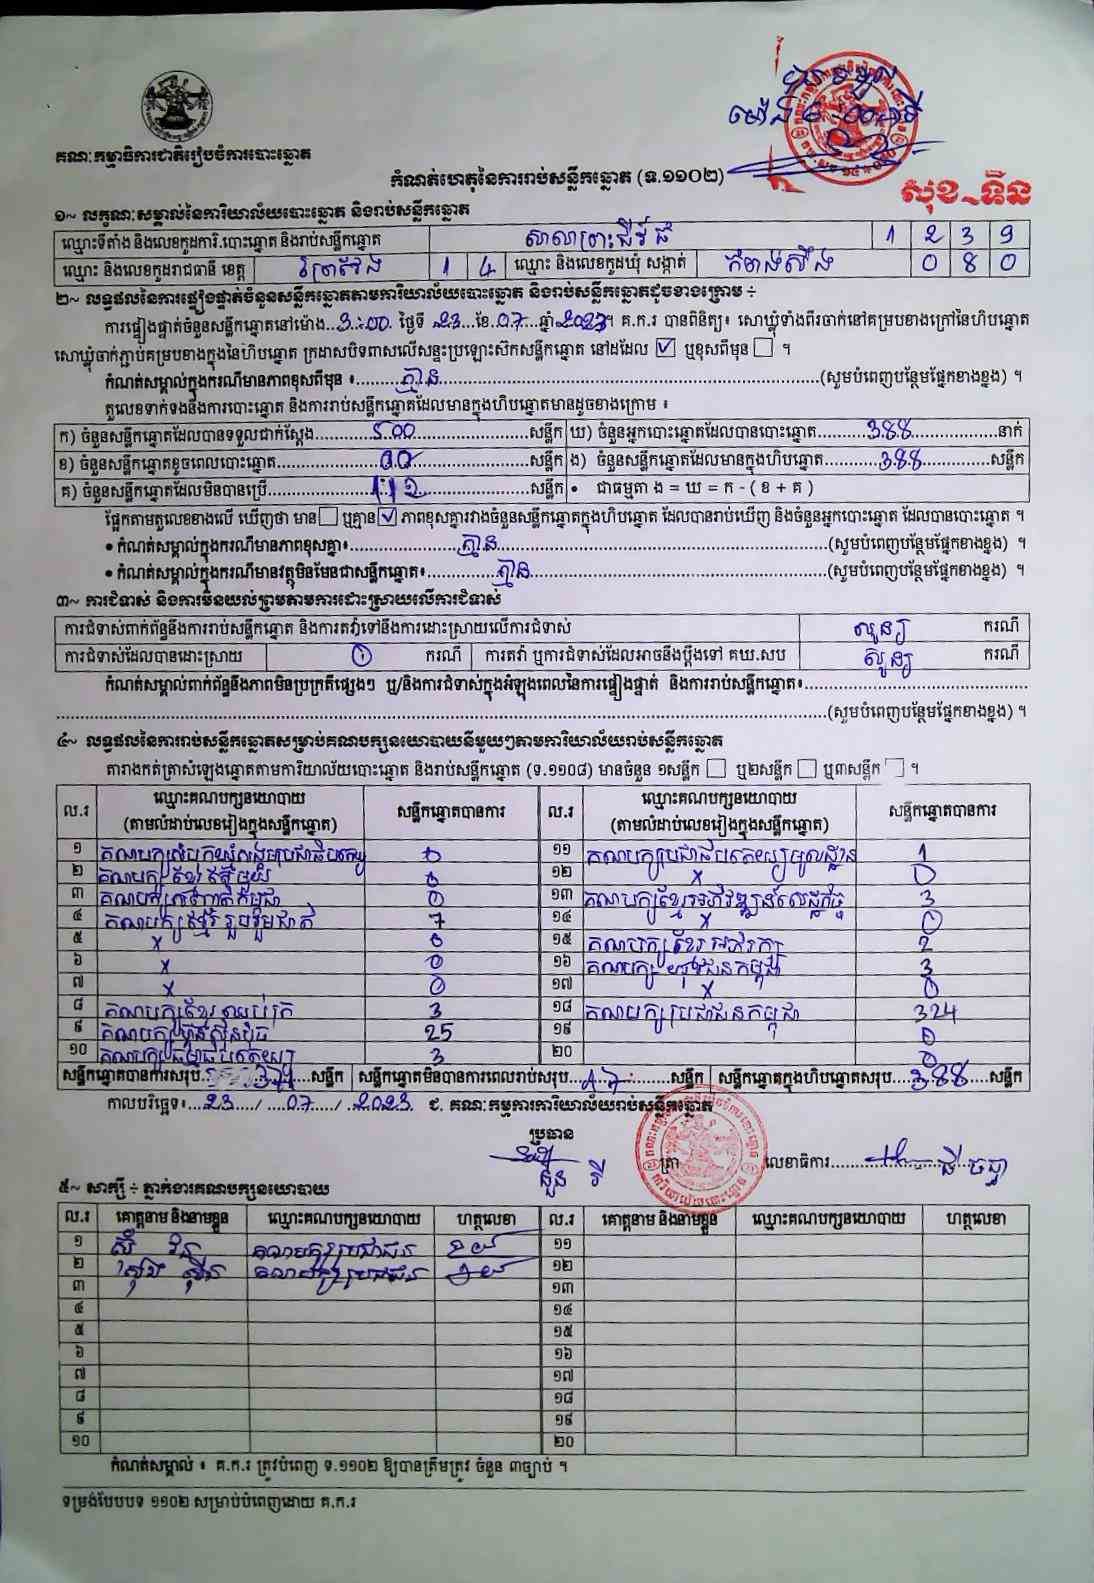 គណៈកម្មាធិការជាតិរៀបចំការបោះឆ្នោត
កំណត់ហេតុនៃការរាប់សន្លឹកឆ្នោត (ទ.១១០២)
សុខ_ទីន
១~ លក្ខណៈសម្គាល់នៃការិយាល័យបោះឆ្នោត និងរាប់សន្លឹកឆ្នោត
ឈ្មោះទីតាំង និងលេខកូដការិ.បោះឆ្នោត និងរាប់សន្លឹកឆ្នោត 1 2 3 9
ឈ្មោះ និងលេខកូដរាជធានី ខេត្ត ព្រៃវែង 1 4 ឈ្មោះ និងលេខកូដឃុំ សង្កាត់ កំពង់ស៊ឹង 0 8 0
២~ លទ្ធផលនៃការផ្ទៀងផ្ទាត់ចំនួនសន្លឹកឆ្នោតតាមការិយាល័យបោះឆ្នោត និងរាប់សន្លឹកឆ្នោតដូចខាងក្រោម ÷
ការផ្ទៀងផ្ទាត់ចំនួនសន្លឹកឆ្នោតនៅម៉ោង...3:00. ថ្ងៃទី 23...ខែ.07... ឆ្នាំ 2023។ គ.ក.រ បានពិនិត្យ៖ សោឃ្លុំទាំងពីរចាក់នៅគម្របខាងក្រៅនៃហិបឆ្នោត
សោឃ្លុំចាក់ភ្ជាប់គម្របខាងក្នុងនៃហិបឆ្នោត ក្រដាសបិទពាសលើសន្ទះប្រឡោះស៊កសន្លឹកឆ្នោត នៅដដែល ☑ ឬខុសពីមុន ☐ ។
កំណត់សម្គាល់ក្នុងករណីមានភាពខុសពីមុន ៖........គ្មាន........(សូមបំពេញបន្ថែមផ្នែកខាងខ្នង) ។
តួលេខទាក់ទងនឹងការបោះឆ្នោត និងការរាប់សន្លឹកឆ្នោតដែលមានក្នុងហិបឆ្នោតមានដូចខាងក្រោម ៖
ក) ចំនួនសន្លឹកឆ្នោតដែលបានទទួលជាក់ស្តែង........500........សន្លឹក ឃ) ចំនួនអ្នកបោះឆ្នោតដែលបានបោះឆ្នោត........388........នាក់
ខ) ចំនួនសន្លឹកឆ្នោតខូចពេលបោះឆ្នោត........00........សន្លឹក ង) ចំនួនសន្លឹកឆ្នោតដែលមានក្នុងហិបឆ្នោត........388........សន្លឹក
គ) ចំនួនសន្លឹកឆ្នោតដែលមិនបានប្រើ........112........សន្លឹក • ជាធម្មតា ង = ឃ = ក - ( ខ + គ )
ផ្អែកតាមតួលេខខាងលើ ឃើញថា មាន ☐ ឬគ្មាន ☑ ភាពខុសគ្នារវាងចំនួនសន្លឹកឆ្នោតក្នុងហិបឆ្នោត ដែលបានរាប់ឃើញ និងចំនួនអ្នកបោះឆ្នោត ដែលបានបោះឆ្នោត ។
• កំណត់សម្គាល់ក្នុងករណីមានភាពខុសគ្នា៖........គ្មាន........(សូមបំពេញបន្ថែមផ្នែកខាងខ្នង) ។
• កំណត់សម្គាល់ក្នុងករណីមានវត្ថុមិនមែនជាសន្លឹកឆ្នោត៖........គ្មាន........(សូមបំពេញបន្ថែមផ្នែកខាងខ្នង) ។
៣~ ការជំទាស់ និងការមិនយល់ព្រមតាមការដោះស្រាយលើការជំទាស់
ការជំទាស់ពាក់ព័ន្ធនឹងការរាប់សន្លឹកឆ្នោត និងការតវ៉ាទៅនឹងការដោះស្រាយលើការជំទាស់ សូន្យ ករណី
ការជំទាស់ដែលបានដោះស្រាយ 0 ករណី ការតវ៉ា ឬការជំទាស់ដែលអាចនឹងប្តឹងទៅ គឃ.សប សូន្យ ករណី
កំណត់សម្គាល់ពាក់ព័ន្ធនឹងភាពមិនប្រក្រតីផ្សេងៗ ឬ/និងការជំទាស់ក្នុងអំឡុងពេលនៃការផ្ទៀងផ្ទាត់ និងការរាប់សន្លឹកឆ្នោត៖........
........(សូមបំពេញបន្ថែមផ្នែកខាងខ្នង) ។
៤~ លទ្ធផលនៃការរាប់សន្លឹកឆ្នោតសម្រាប់គណបក្សនយោបាយនីមួយៗតាមការិយាល័យរាប់សន្លឹកឆ្នោត
តារាងកត់ត្រាសំឡេងឆ្នោតតាមការិយាល័យបោះឆ្នោត និងរាប់សន្លឹកឆ្នោត (ទ.១១០៨) មានចំនួន ១សន្លឹក ☐ ឬ២សន្លឹក ☐ ឬ៣សន្លឹក ☐ ។
ល.រ ឈ្មោះគណបក្សនយោបាយ (តាមលំដាប់លេខរៀងក្នុងសន្លឹកឆ្នោត) សន្លឹកឆ្នោតបានការ ល.រ ឈ្មោះគណបក្សនយោបាយ (តាមលំដាប់លេខរៀងក្នុងសន្លឹកឆ្នោត) សន្លឹកឆ្នោតបានការ
១ គណបក្សសំបុកឃ្មុំសង្គមប្រជាធិបតេយ្យ 0 ១១ គណបក្សប្រជាធិបតេយ្យមូលដ្ឋាន 1
២ គណបក្សខ្មែរតែមួយ 0 ១២ x 0
៣ គណបក្ស កម្ពុជា 0 ១៣ គណបក្សខ្មែរអភិវឌ្ឍន៍សេដ្ឋកិច្ច 3
៤ គណបក្សខ្មែររួបរួមជាតិ 7 ១៤ x 0
៥ x 0 ១៥ គណបក្សខ្មែរអភិរក្ស 2
៦ x 0 ១៦ គណបក្ស យុវជនកម្ពុជា 3
៧ x 0 ១៧ x 0
៨ គណបក្សខ្មែរឈប់ក្រ 3 ១៨ គណបក្សប្រជាជនកម្ពុជា 324
៩ គណបក្សហ៊្វុនស៊ិនប៉ិច 25 ១៩ 0
១០ គណបក្សធម្មាធិបតេយ្យ 3 ២០ 0
សន្លឹកឆ្នោតបានការសរុប...371...សន្លឹក សន្លឹកឆ្នោតមិនបានការពេលរាប់សរុប...17...សន្លឹក សន្លឹកឆ្នោតក្នុងហិបឆ្នោតសរុប...388...សន្លឹក
កាលបរិច្ឆេទ៖...23.../...07.../..2023. ជ. គណៈកម្មការការិយាល័យរាប់សន្លឹកឆ្នោត
ប្រធាន
ត្រា
លេខាធិការ
៥~ សាក្សី ÷ ភ្នាក់ងារគណបក្សនយោបាយ
ល.រ គោត្តនាម និងនាមខ្លួន ឈ្មោះគណបក្សនយោបាយ ហត្ថលេខា ល.រ គោត្តនាម និងនាមខ្លួន ឈ្មោះគណបក្សនយោបាយ ហត្ថលេខា
១ គណបក្សប្រជាជន ១១
២ គណបក្សប្រជាជន ១២
៣ ១៣
៤ ១៤
៥ ១៥
៦ ១៦
៧ ១៧
៨ ១៨
៩ ១៩
១០ ២០
កំណត់សម្គាល់ ៖ គ.ក.រ ត្រូវបំពេញ ទ.១១០២ ឱ្យបានត្រឹមត្រូវ ចំនួន ៣ច្បាប់ ។
ទម្រង់បែបបទ ១១០២ សម្រាប់បំពេញដោយ គ.ក.រ